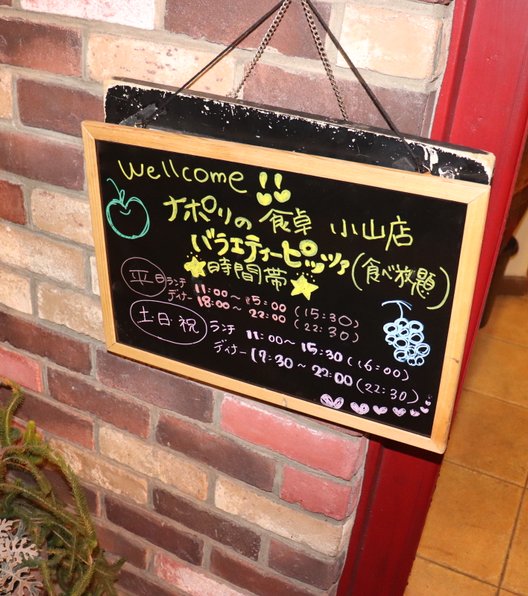 wellcome
ナポリの食卓 小山店
バラエティーピッツァ(食べ放題)
★時間帯★
平日 ランチ 11:00~15:00 (15:30)
ディナー 18:00~22:00 (22:30)
土日・祝 ランチ 11:00~15:30 (16:00)
ディナー 17:30~22:00 (22:30)